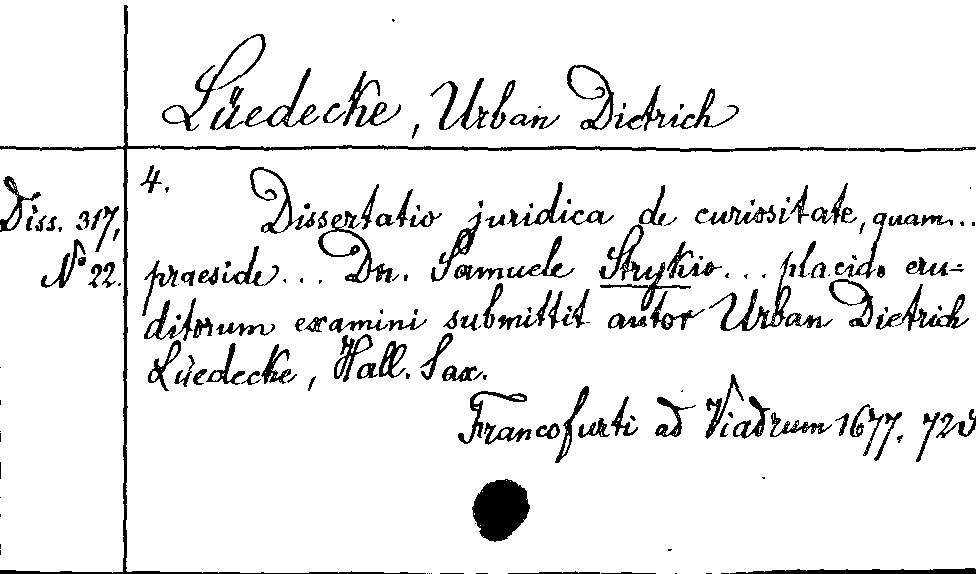 Lüedecke, Urban Dietrich
4.
Diss. 317,
No 22.
Dissertatio juridica de curiositate, quam...
praeside... Dn. Samuele Strykio... placido eru=
ditorum examini submittit autor Urban Dietrich
Lüedecke, Hall. Sax.
Francofurti ad Viadrum 1677. 72